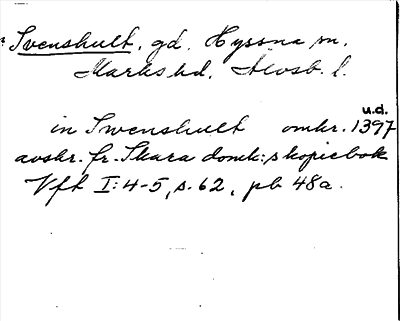 Svenshult, gd. Hyssna sn.
Marks hd, Älvsb. l.
u.d.
in Swenshult omkr. 1397
avskr. fr. Skara domk:s kopiebok
Vft I:4-5, s. 62, pb 48a.